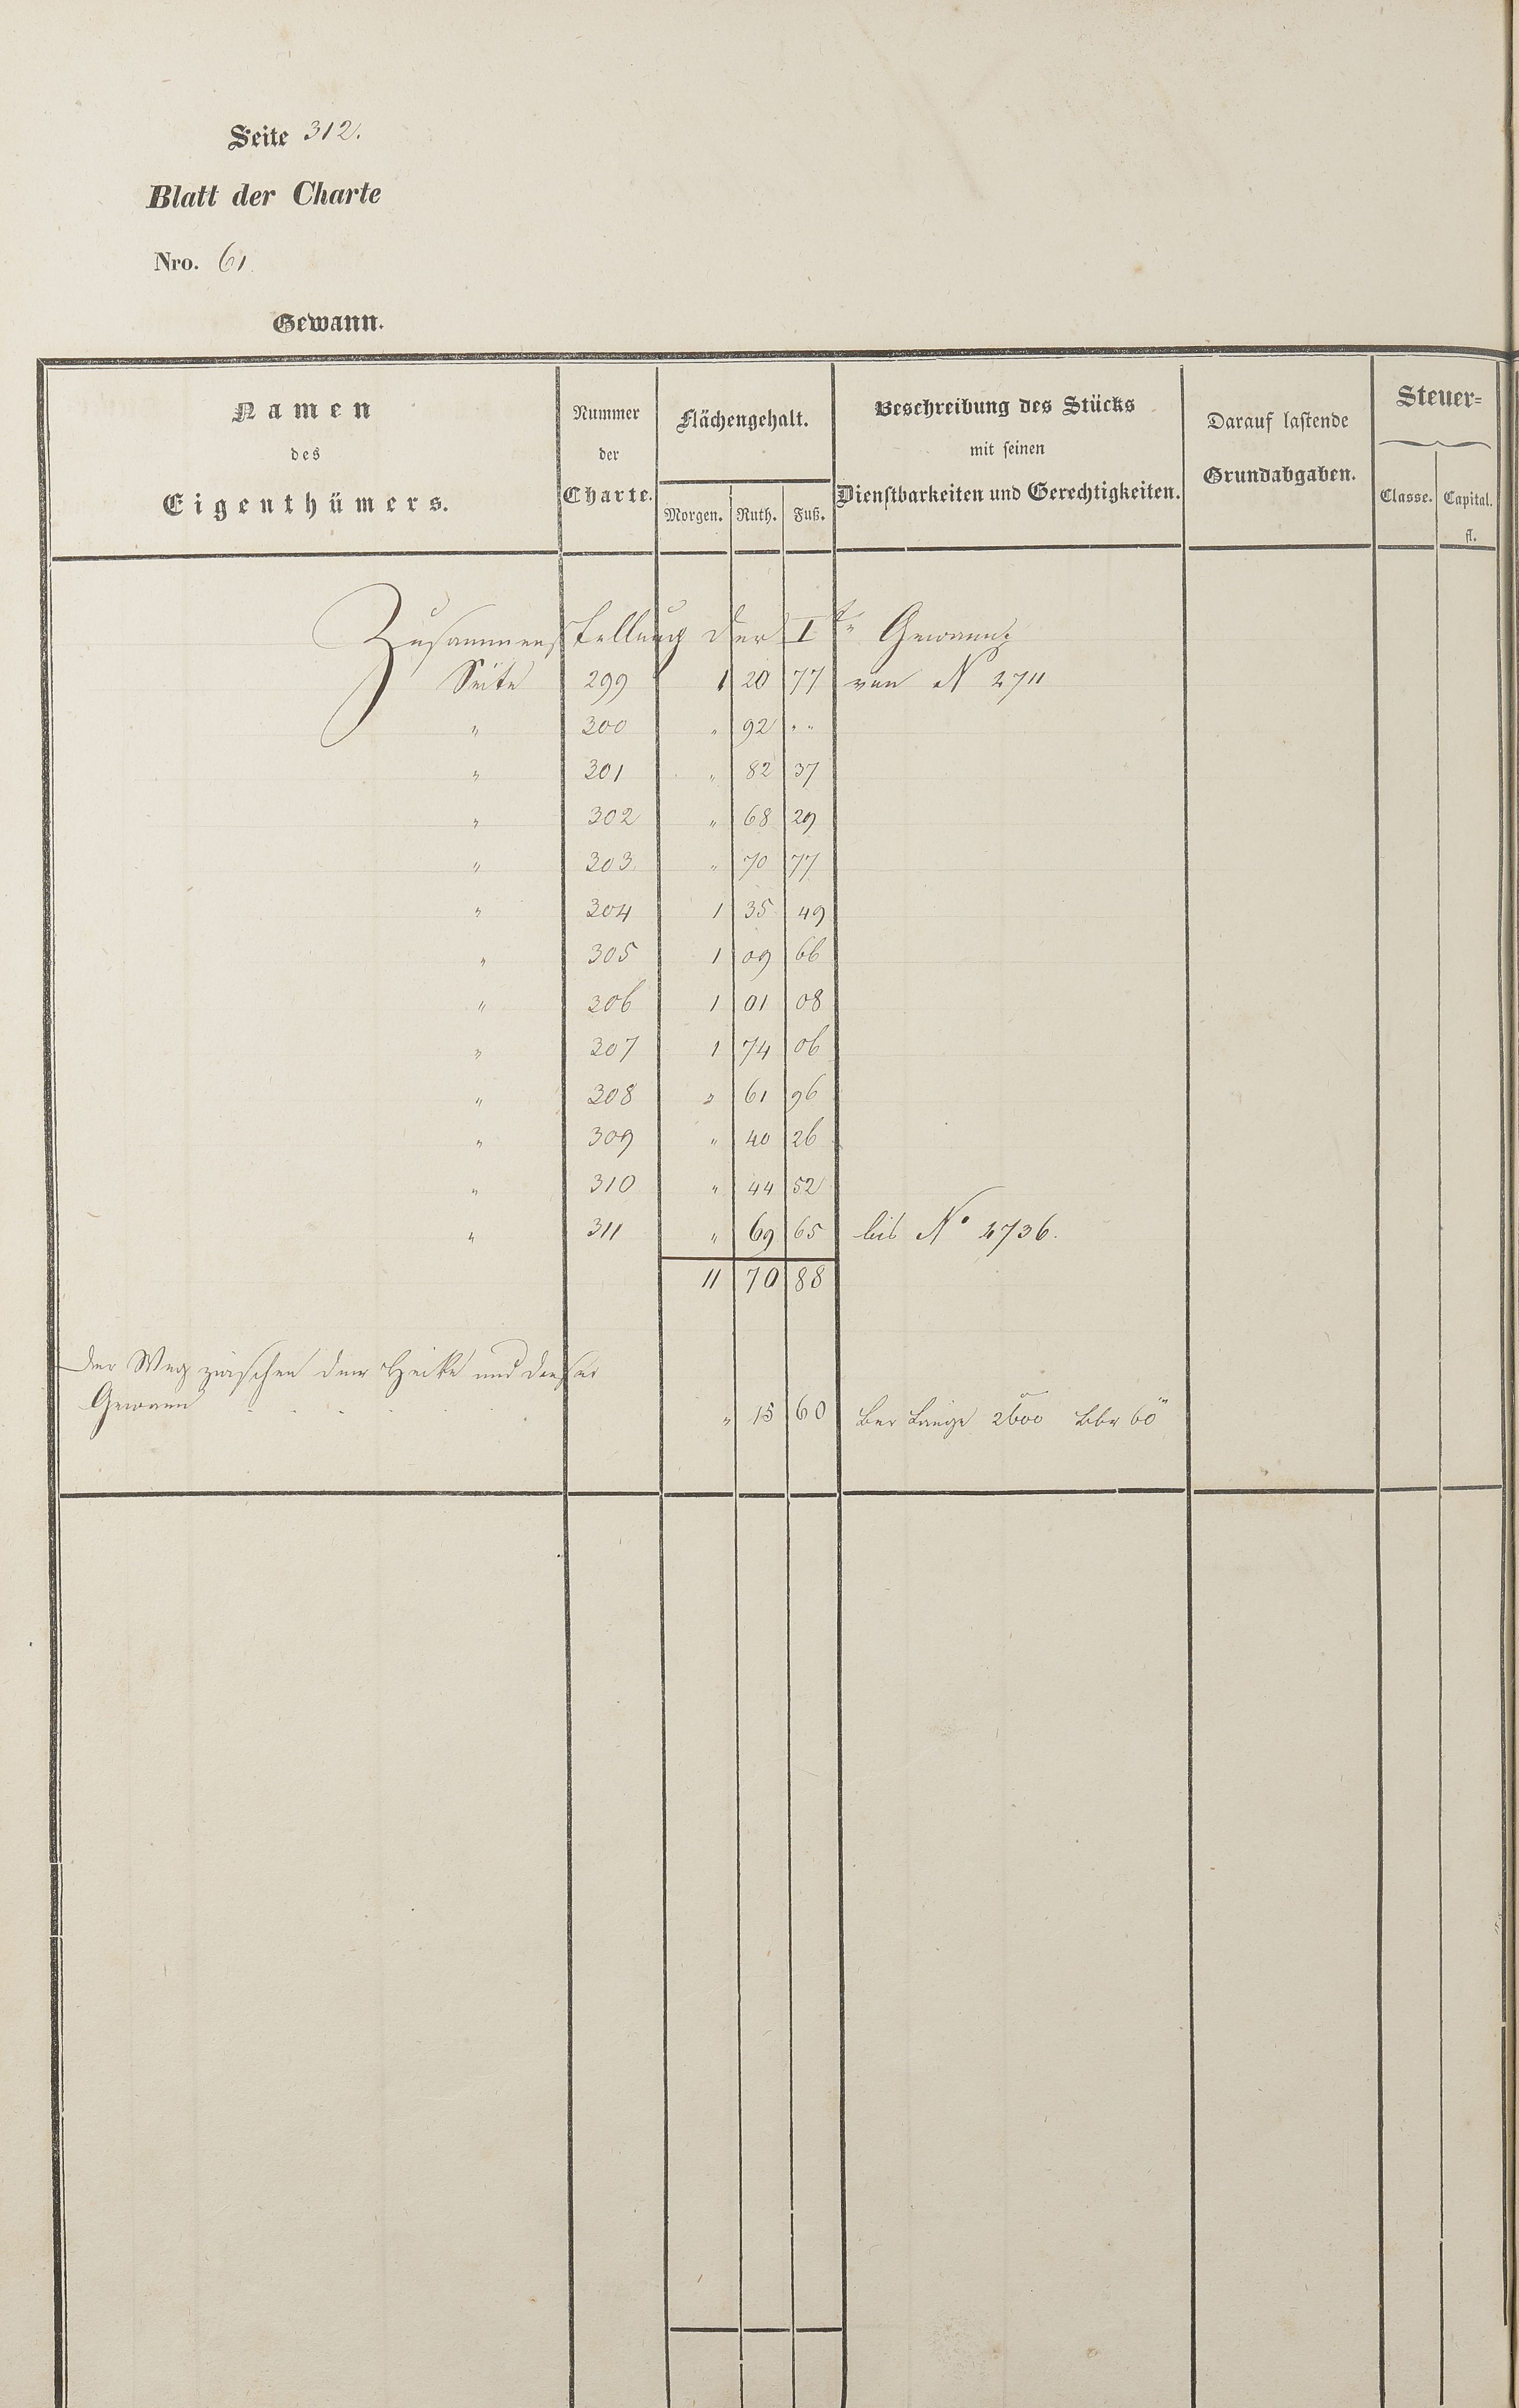 Seite 312.
Blatt der Charte
Nro. 61
Gewann.
Namen des Eigenthümers.
Nummer der Charte.
Flächengehalt.
Morgen. Ruth. Fuß.
Beschreibung des Stücks mit seinen Dienstbarkeiten und Gerechtigkeiten.
Darauf lastende Grundabgaben.
Steuer=
Classe. Capital. fl.
Zusammenstellung der I Gewann:
Seite 299 1 20 77 von No 4711
" 300 " 92 " "
" 301 " 82 37
" 302 " 68 29
" 303 " 70 77
" 304 1 35 49
" 305 1 09 66
" 306 1 01 08
" 307 1 74 06
" 308 " 61 96
" 309 " 40 26
" 310 " 44 52
" 311 " 69 65 bis No 4736.
11 70 88
Der Weg zwischen der Hecke und dieser
Gewann " 15 60 Länge 2600 60"